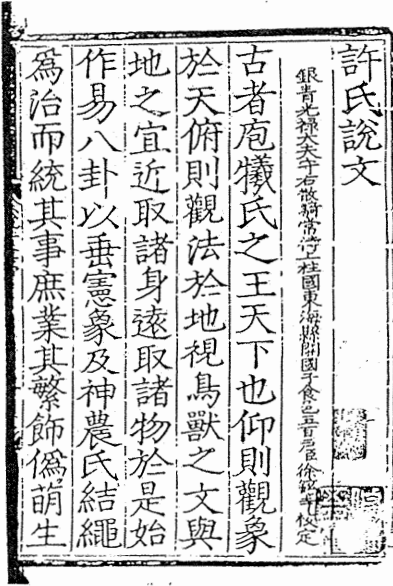 許氏說文
銀青光祿大夫守右散騎常侍上柱國東海縣開國子食邑五百戶臣徐鉉等校定
古者庖犧氏之王天下也仰則觀象
於天俯則觀法於地視鳥獸之文與
地之宜近取諸身遠取諸物於是始
作易八卦以垂憲象及神農氏結繩
爲治而統其事庶業其繁飾僞萌生